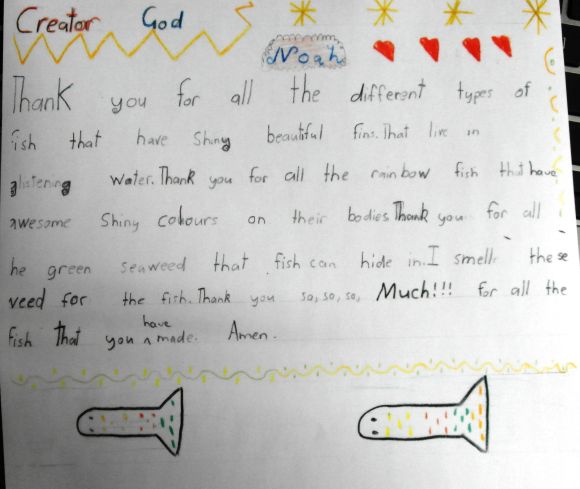 Creator God
Noah
Thank you for all the different types of
fish that have Shiny beautiful fins. That live in
glistening water. Thank you for all the rainbow fish that have
awesome Shiny colours on their bodies Thank you for all
he green seaweed that fish can hide in. I smell these
weed for the fish. Thank you so, so, so, Much!!! for all the
fish That you have made. Amen.